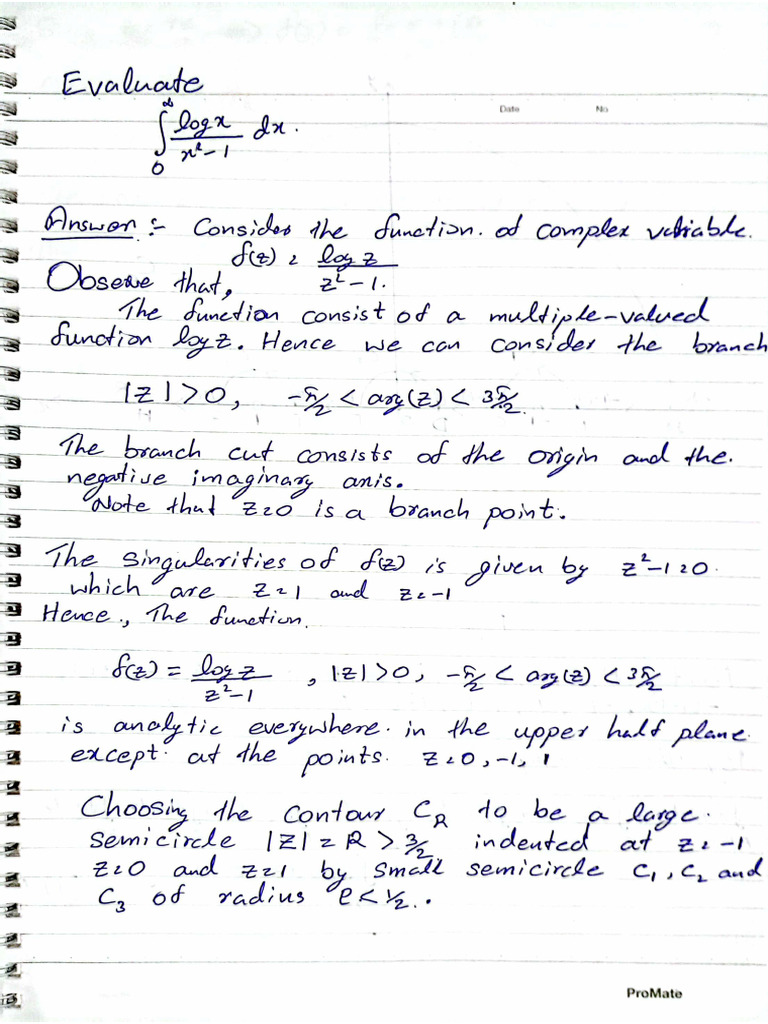 Date No
Evaluate
∫₀^∞ log x / x²-1 dx.
Answer :- Consider the function of complex variable.
f(z) = log z / z²-1.
Observe that,
The function consist of a multiple-valued
function log z. Hence we can consider the branch
|z| > 0, -π/2 < arg(z) < 3π/2.
The branch cut consists of the origin and the
negative imaginary axis.
Note that z=0 is a branch point.
The singularities of f(z) is given by z²-1=0.
which are z=1 and z=-1
Hence, The function.
f(z) = log z / z²-1 , |z|>0, -π/2 < arg(z) < 3π/2
is analytic everywhere in the upper half plane
except at the points z=0,-1,1
Choosing the contour C_R to be a large
semicircle |z|=R > 3/2 indented at z=-1
z=0 and z=1 by small semicircle C₁, C₂ and
C₃ of radius ρ<1/2.
ProMate